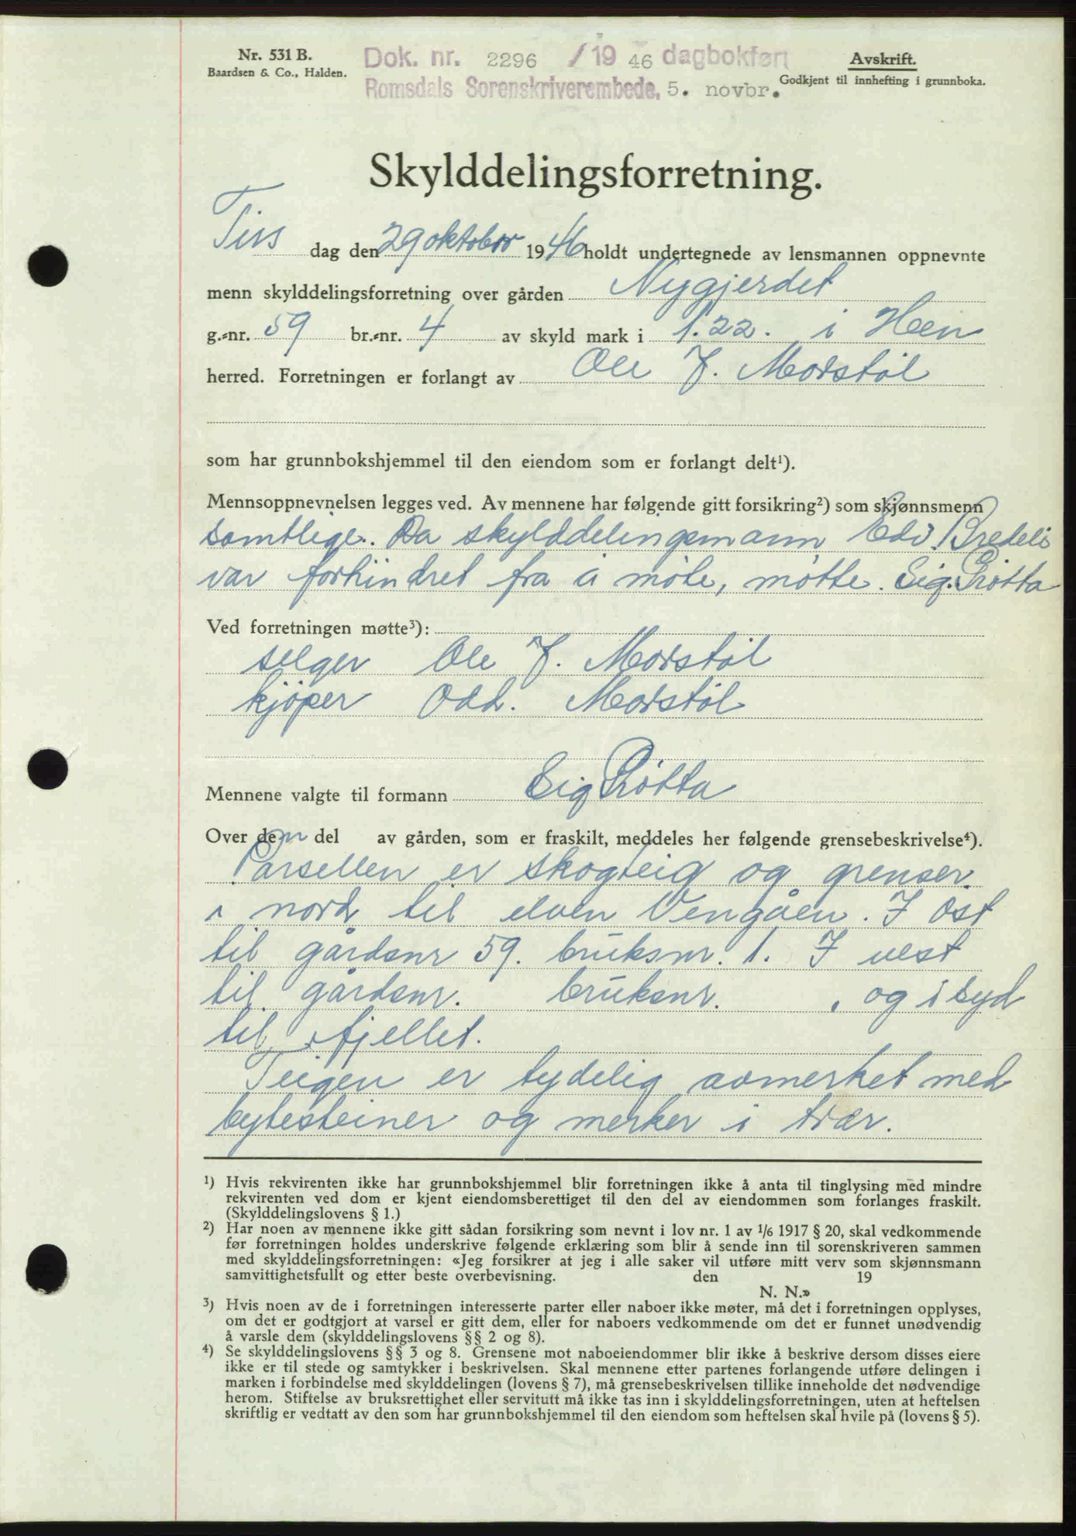 Nr. 531 B.
Baardsen & Co., Halden.
Dok. nr. 2296 /19 46 dagbokført
Romsdals Sorenskriverembede, 5. novbr.
Avskrift.
Godkjent til innhefting i grunnboka.
Skylddelingsforretning.
Tirs dag den 29 oktober 1946 holdt undertegnede av lensmannen oppnevnte
menn skylddelingsforretning over gården Nygjerdet
g.-nr. 59 br.-nr. 4 av skyld mark i 1.22. i Hen
herred. Forretningen er forlangt av Ole J. Morstøl
som har grunnbokshjemmel til den eiendom som er forlangt delt¹).
Mennsoppnevnelsen legges ved. Av mennene har følgende gitt forsikring²) som skjønnsmenn
samtlige. Da skylddelingsmann Edv. Bredeli
var forhindret fra å møte, møtte. Sig. Grøtta
Ved forretningen møtte³):
selger Ole J. Morstøl
kjøper Odd. Morstøl
Mennene valgte til formann Sig Grøtta
Over den del av gården, som er fraskilt, meddeles her følgende grensebeskrivelse⁴).
Parsellen er skogteig og grenser.
i nord til elven Vengåen. I øst
til gårdsnr 59. bruksnr. 1. I vest
til gårdsnr. bruksnr. , og i syd
til fjellet.
Teigen er tydelig avmerket med
bytesteiner og merker i trær.
¹) Hvis rekvirenten ikke har grunnbokshjemmel blir forretningen ikke å anta til tinglysing med mindre
rekvirenten ved dom er kjent eiendomsberettiget til den del av eiendommen som forlanges fraskilt.
(Skylddelingslovens § 1.)
²) Har noen av mennene ikke gitt sådan forsikring som nevnt i lov nr. 1 av ¹/6 1917 § 20, skal vedkommende
før forretningen holdes underskrive følgende erklæring som blir å sende inn til sorenskriveren sammen
med skylddelingsforretningen: «Jeg forsikrer at jeg i alle saker vil utføre mitt verv som skjønnsmann
samvittighetsfullt og etter beste overbevisning. den 19
N. N.»
³) Hvis noen av de i forretningen interesserte parter eller naboer ikke møter, må det i forretningen opplyses,
om det er godtgjort at varsel er gitt dem, eller for naboers vedkommende om det er funnet unødvendig
å varsle dem (skylddelingslovens §§ 2 og 8).
⁴) Se skylddelingslovens §§ 3 og 8. Grensene mot naboeiendommer blir ikke å beskrive dersom disses eiere
ikke er til stede og samtykker i beskrivelsen. Skal mennene etter partenes forlangende utføre delingen i
marken i forbindelse med skylddelingen (lovens § 7), må grensebeskrivelsen tillike inneholde det nødvendige
herom. Stiftelse av bruksrettighet eller servitutt må ikke tas inn i skylddelingsforretningen, uten at heftelsen
skriftlig er vedtatt av den som har grunnbokshjemmel til den eiendom som heftelsen skal hvile på (lovens § 5).